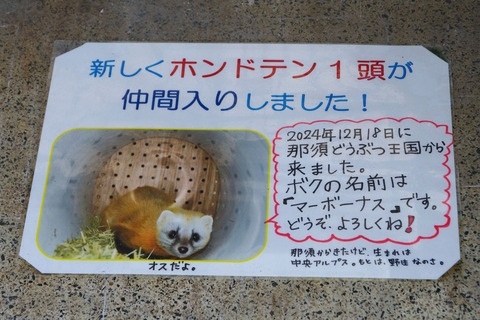 新しくホンドテン1頭が
仲間入りしました！
2024年12月18日に
那須どうぶつ王国から
来ました。
ボクの名前は
「マーボーナス」です。
どうぞ、よろしくね！
オスだよ。
那須からきたけど、生まれは
中央アルプス。もとは、野生なのさ。